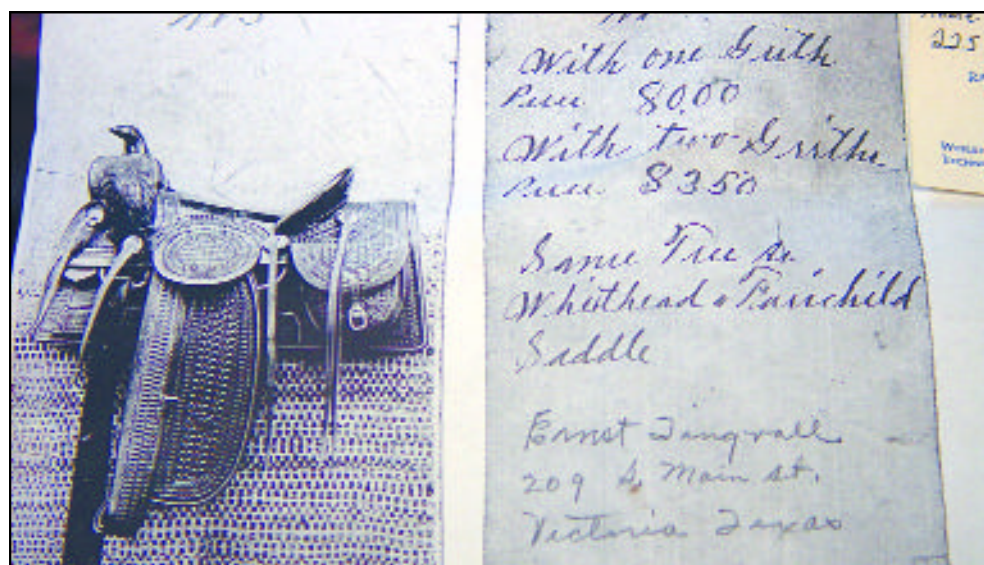 With one Girth
Price 80.00
With two Girths
Price 83.50
Same Tree as
Whitehead & Fairchild
Saddle
Ernst Tingvall
209 S. Main st.
Victoria Texas
225